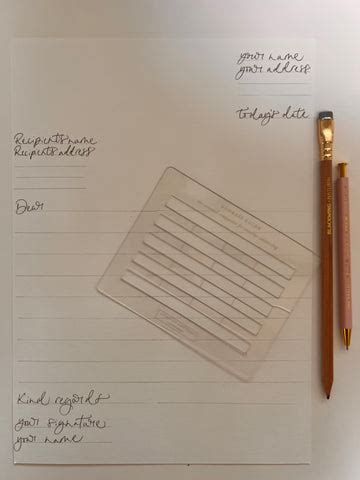 your name
your address
today's date
Recipient's name
Recipients address
Dear
Kind regards
your signature
your name
BLACKWING